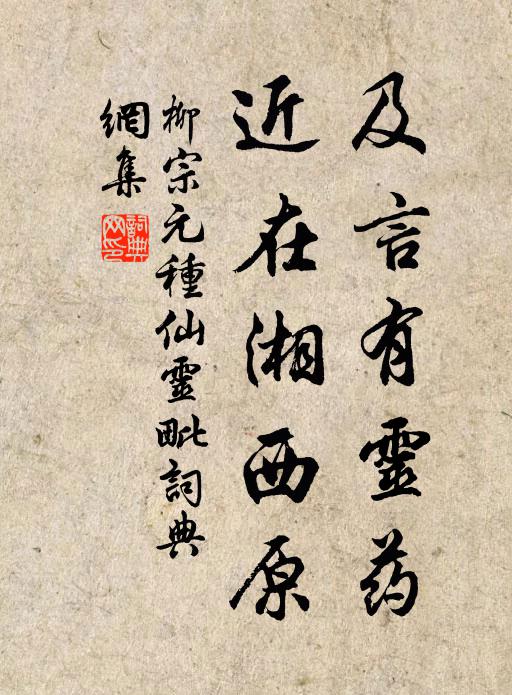 及言有靈药
近在湘西原
柳宗元種仙靈毗詞典
網集
詞典
网印